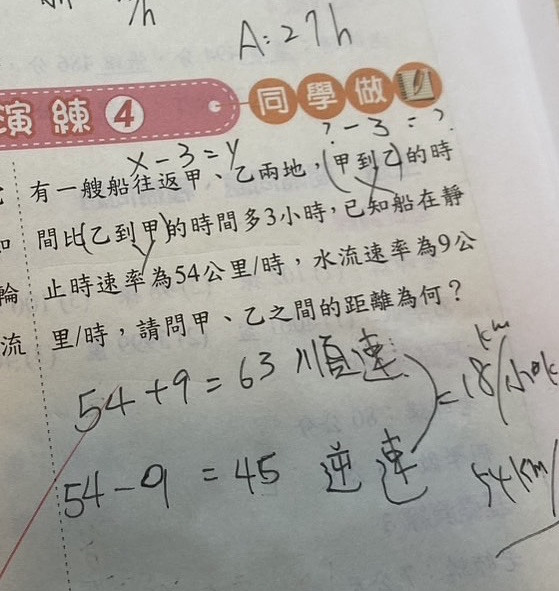 /h
A:27h
演練4
同學做
? - 3 = ?
x - 3 = y
有一艘船往返甲、乙兩地,(甲到乙)的時
x
間比(乙到甲)的時間多3小時,已知船在靜
y
止時速率為54公里/時,水流速率為9公
里/時,請問甲、乙之間的距離為何?
輪
流
54 + 9 = 63 順速
= 18 km/小時
54 - 9 = 45 逆速
54 km/